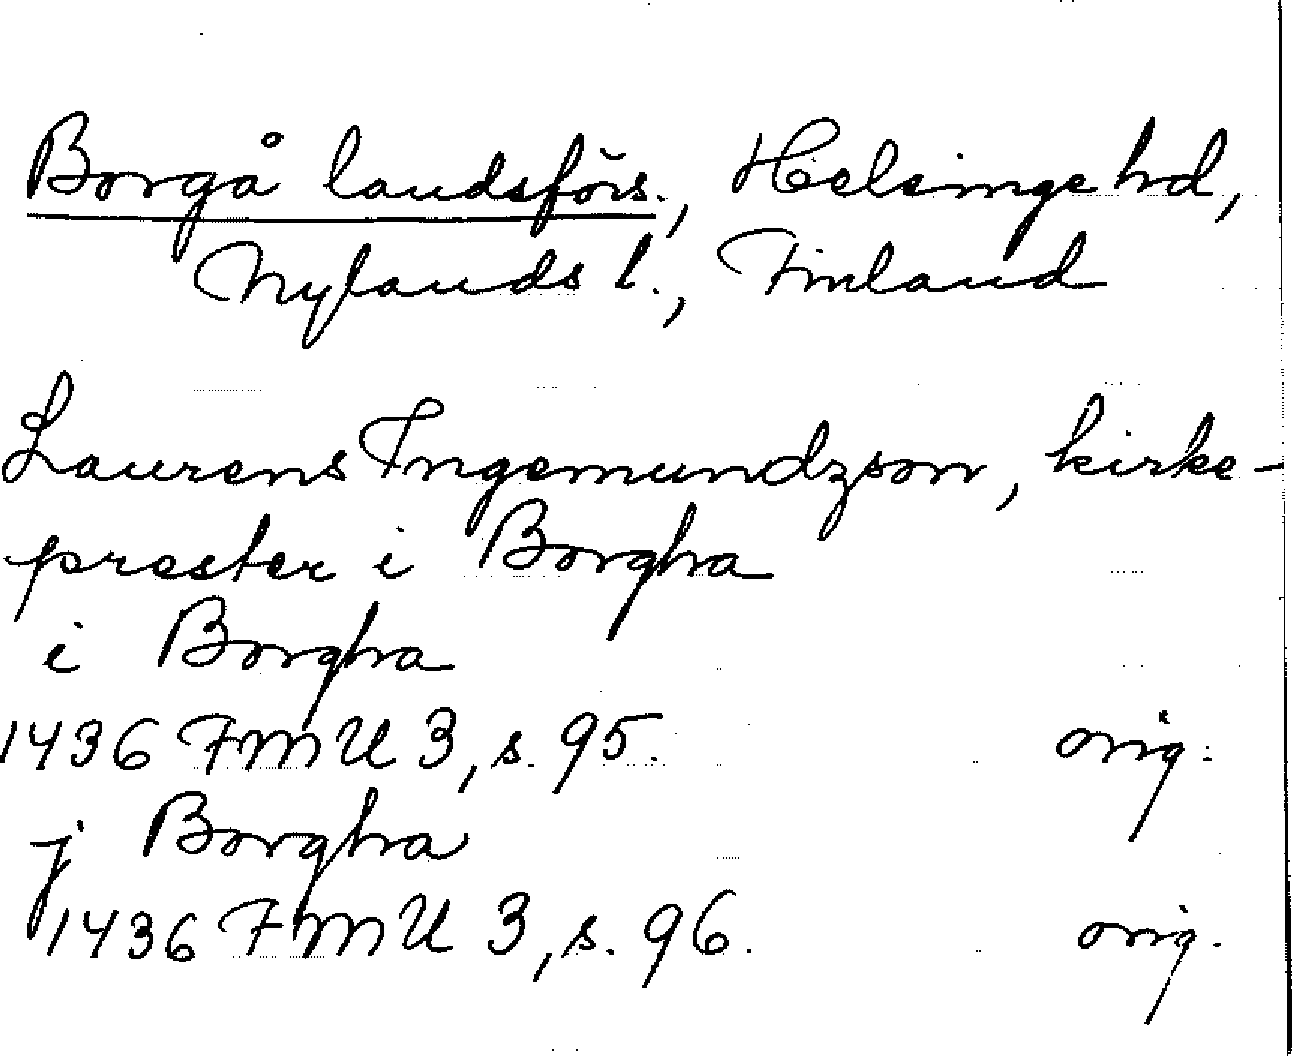 Borgå landsförs., Helsinge hd,
Nylands l., Finland
Laurens Ingemundzson, kirke-
prester i Borgha
i Borgha
1436 FMU 3, s. 95. orig.
j Borgha
1436 FMU 3, s. 96. orig.